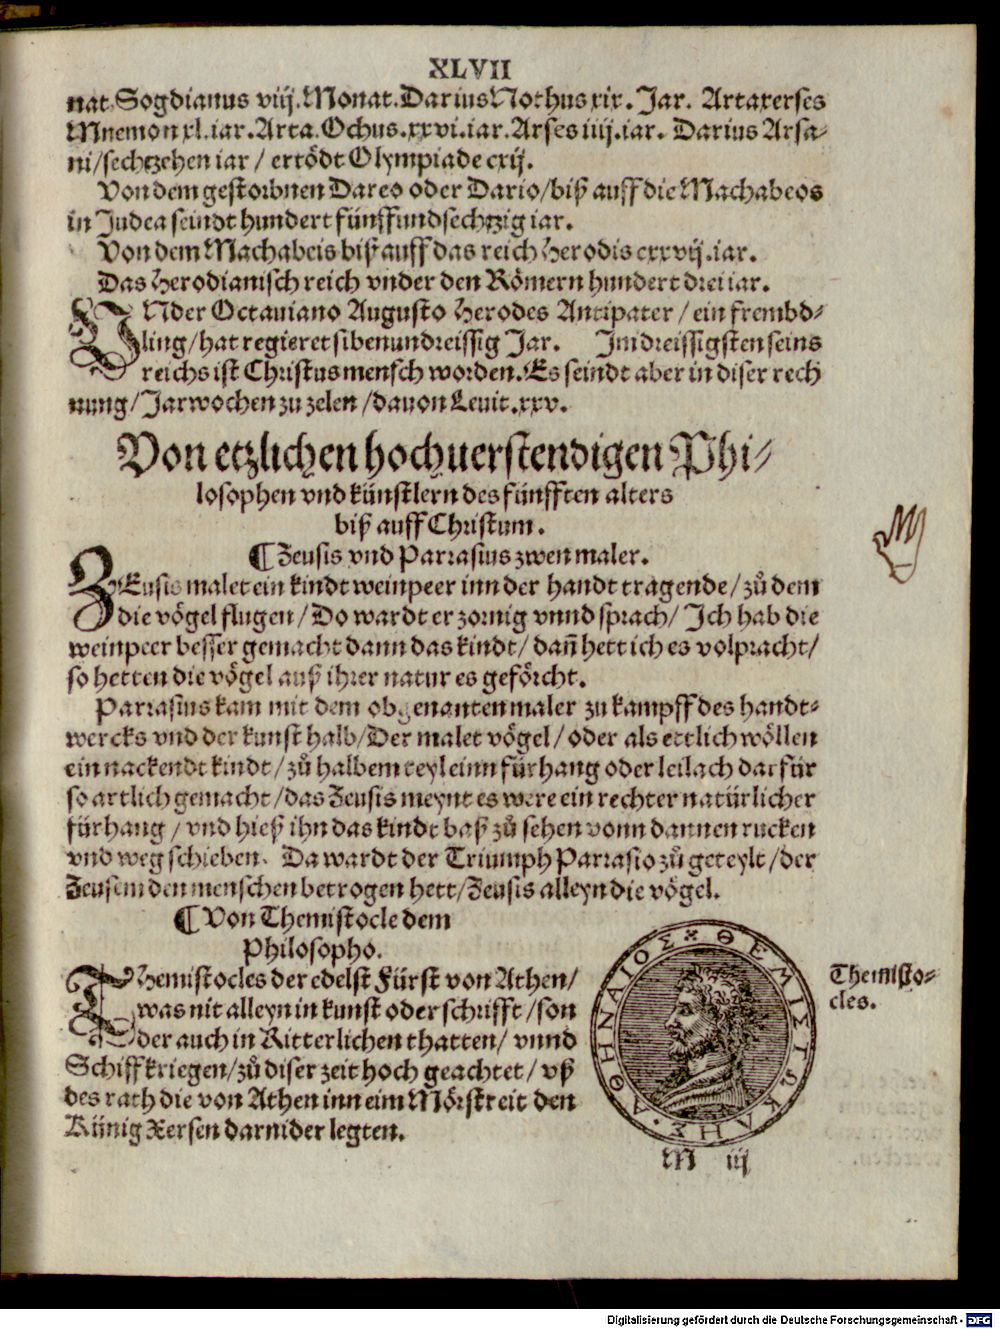 XLVII
nat. Sogdianus viij. Monat. Darius Nothus xix. Jar. Artaxerses
Mnemon xl. iar. Arta. Ochus. xxvi. iar. Arses iiij. iar. Darius Arsa-
ni/ sechtzehen iar / ertödt Olympiade cxij.
Von dem gestorbnen Dareo oder Dario/ biß auff die Machabeos
in Judea seindt hundert fünffundsechtzig iar.
Von dem Machabeis biß auff das reich Herodis cxxvij. iar.
Das Herodianisch reich vnder den Römern hundert drei iar.
VNder Octauiano Augusto Herodes Antipater / ein frembd-
ling/ hat regieret sibenundreissig Jar. Im dreissigsten seins
reichs ist Christus mensch worden. Es seindt aber in diser rech
nung/ Jarwochen zu zelen / dauon Leuit. xxv.
Von etzlichen hochuerstendigen Phi-
losophen vnd künstlern des fünfften alters
biß auff Christum.
¶ Zeusis vnd Parrasius zwen maler.
ZEusis malet ein kindt weinpeer inn der handt tragende/ zů dem
die vögel flugen / Do wardt er zornig vnnd sprach/ Ich hab die
weinpeer besser gemacht dann das kindt/ dañ hett ich es volpracht/
so hetten die vögel auß ihrer natur es geförcht.
Parrasius kam mit dem obgenanten maler zu kampff des handt-
wercks vnd der kunst halb/ Der malet vögel / oder als ettlich wöllen
ein nackendt kindt / zů halbem teyl einn fürhang oder leilach darfür
so artlich gemacht / das Zeusis meynt es were ein rechter natürlicher
fürhang / vnd hieß ihn das kindt baß zů sehen vonn dannen rucken
vnd weg schieben. Da wardt der Triumph Parrasio zů geteylt / der
Zeusem den menschen betrogen hett/ Zeusis alleyn die vögel.
¶ Von Themistocle dem
Philosopho.
THemistocles der edelst Fürst von Athen/
was nit alleyn in kunst oder schrifft / son
der auch in Ritterlichen thatten/ vnnd
Schiffkriegen/ zů diser zeit hoch geachtet / vß
des rath die von Athen inn eim Mörstreit den
Künig Xersen darnider legten.
ΘΕΜΙΣΤΩΚΛΗΣ · ΑΘΗΝΑΙΟΣ
Themisto-
cles.
M iij
Digitalisierung gefördert durch die Deutsche Forschungsgemeinschaft - DFG